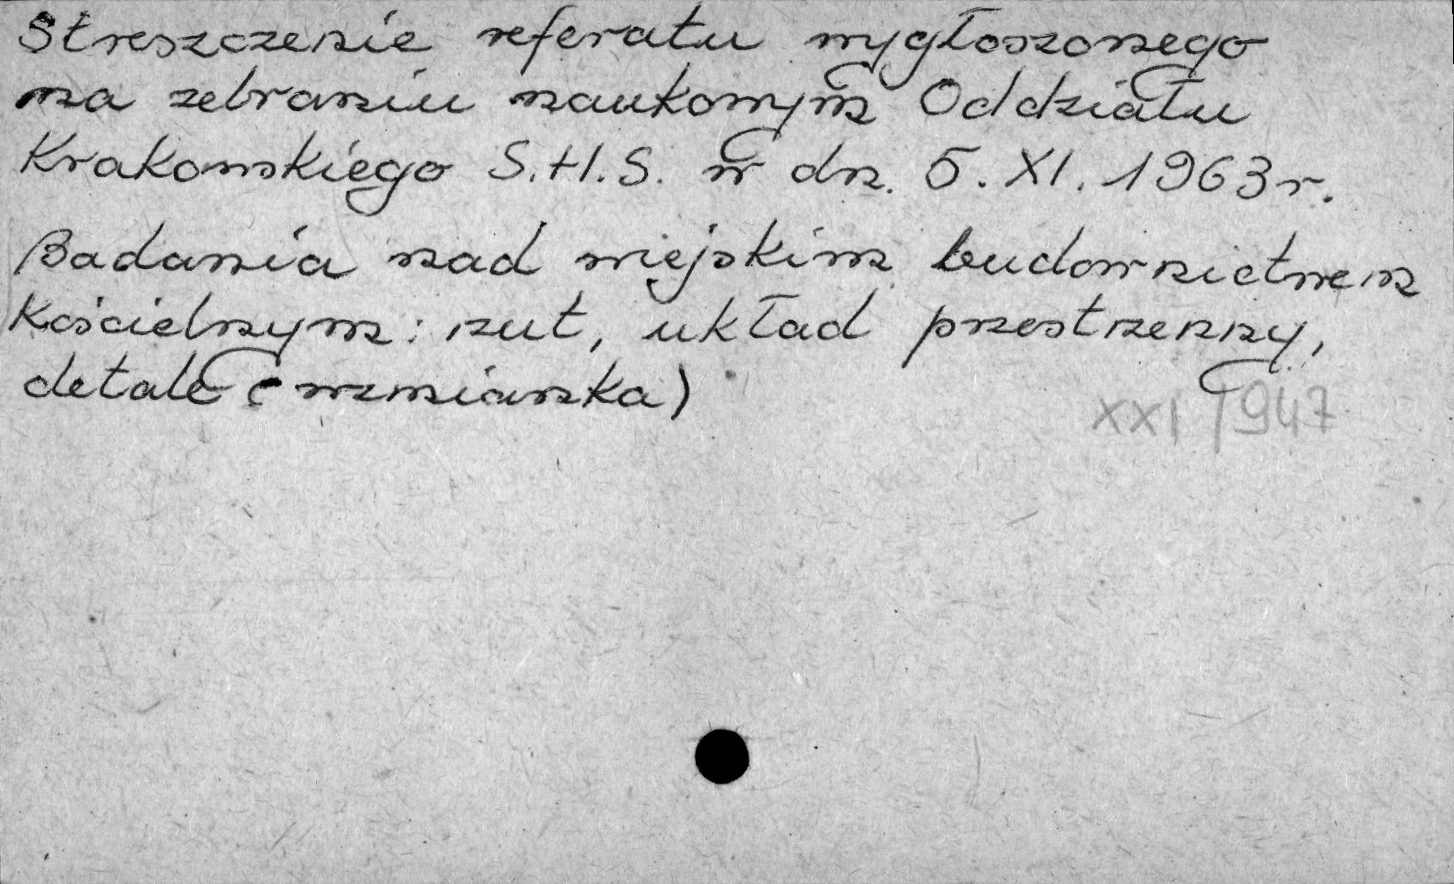 Streszczenie referatu wygłoszonego
na zebraniu naukowym Oddziału
Krakowskiego S.H.S. w dn. 5. XI. 1963 r.
Badania nad wiejskim budownictwem
kościelnym: rzut, układ przestrzenny,
detale (wzmianka)
XXI 1947